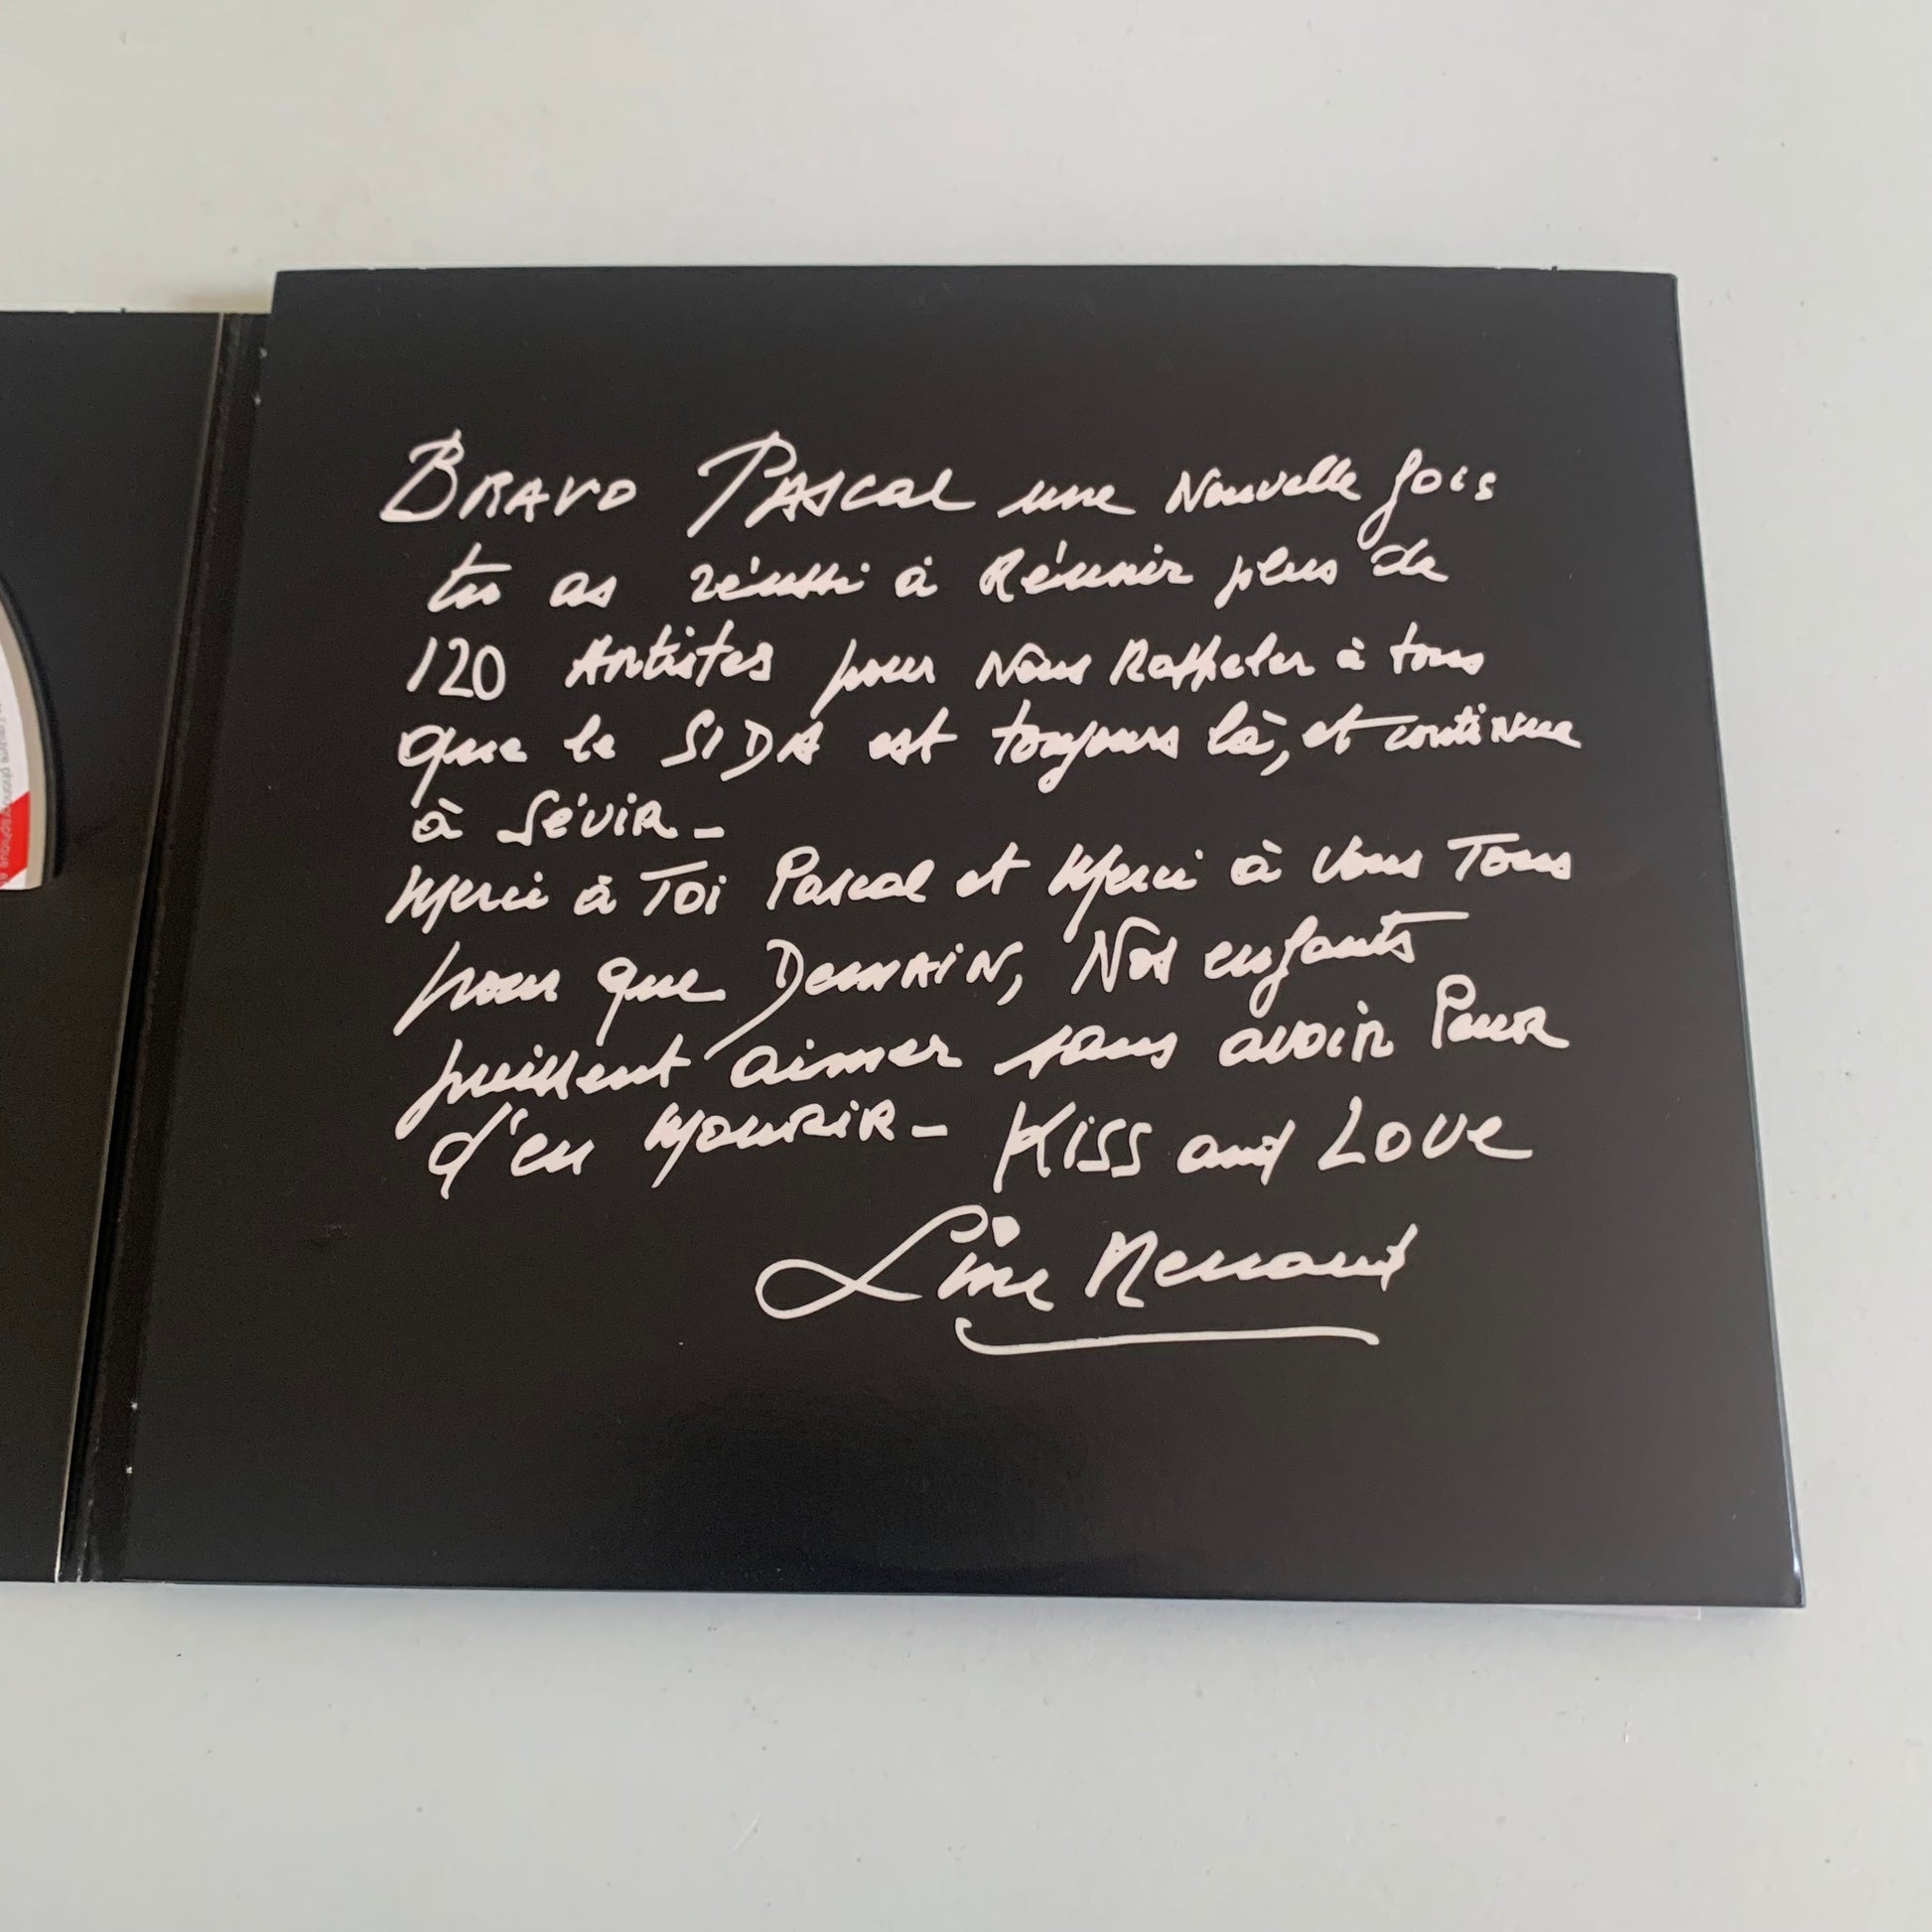 Bravo Pascal une Nouvelle fois
tu as réussi à Réunir plus de
120 Artistes pour Nous Rappeler à tous
que le SIDA est toujours là, et continue
à Sévir_
Merci à Toi Pascal et Merci à Vous Tous
pour que Demain, Nos enfants
puissent aimer sans avoir Peur
d'en Mourir_ Kiss and Love
Line Renaud